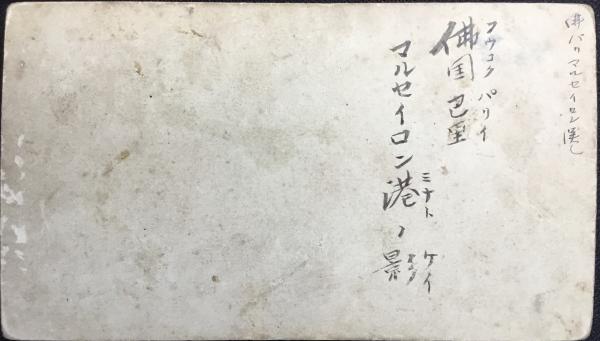 佛パリマルセイロン港
フウコク パリイ
佛国巴里
マルセイロン港ノ影
ミナト ケイ